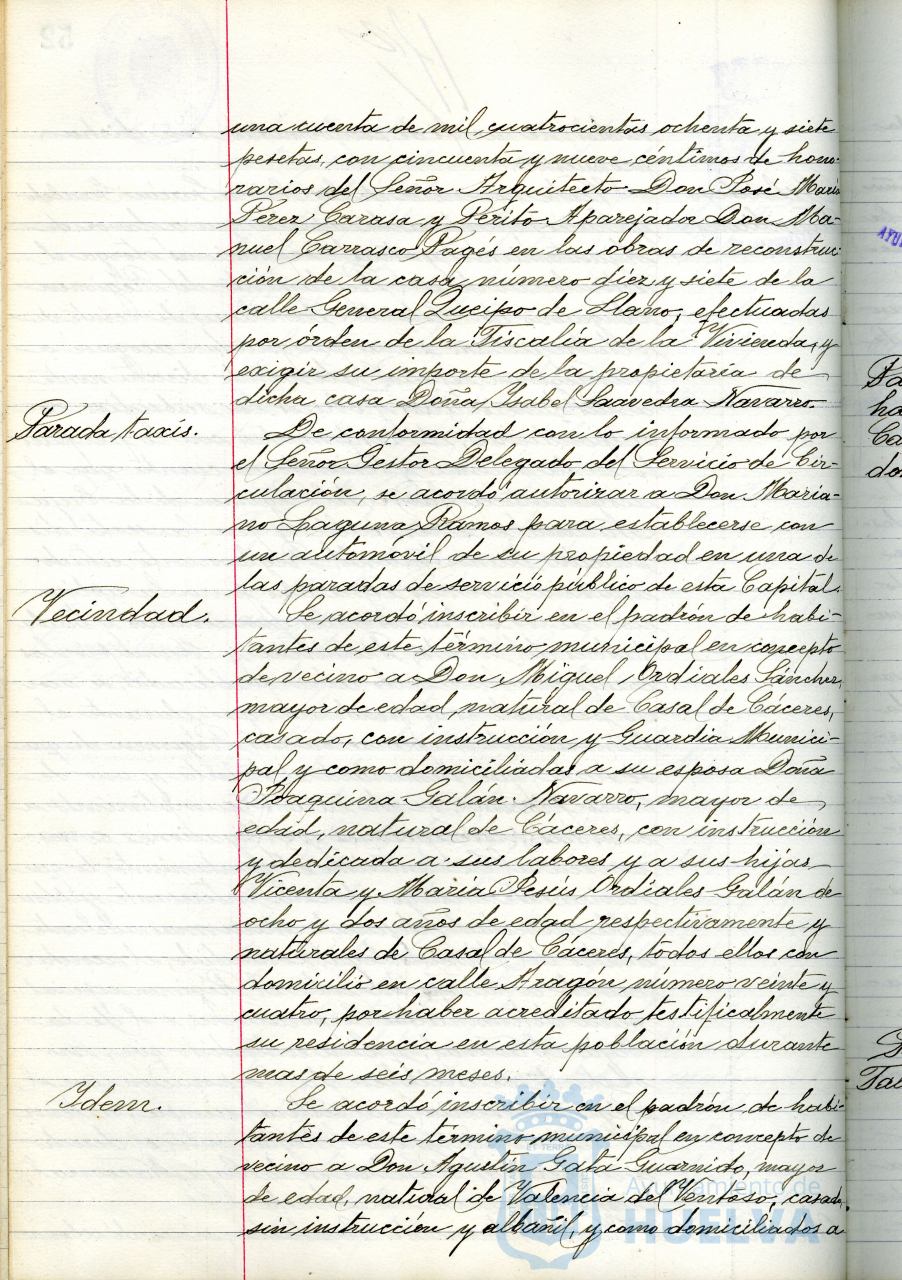 una cuenta de mil cuatrocientas ochenta y siete
pesetas, con cincuenta y nueve céntimos de hono-
rarios del Señor Arquitecto Don José María
Pérez Carasa y Périto Aparejador Don Ma-
nuel Carrasco Pagés en las obras de reconstruc-
ción de la casa número diéz y siete de la
calle General Queipo de Llano, efectuadas
por órden de la Fiscalía de la Vivienda, y
exigir su importe de la propietaria de
dicha casa Doña Isabel Saavedra Navarro.
Parada taxis.
De conformidad con lo informado por
el Señor Gestor Delegado del Servicio de Cir-
culación, se acordó autorizar a Don Maria-
no Laguna Ramos para establecerse con
un automóvil de su propiedad en una de
las paradas de servicio público de esta Capital.
Vecindad.
Se acordó inscribir en el padrón de habi-
tantes de este término municipal en concepto
de vecino a Don Miguel Ordiales Sánchez,
mayor de edad, natural de Casal de Cáceres,
casado, con instrucción y Guardia Munici-
pal y como domiciliadas a su esposa Doña
Joaquina Galán Navarro, mayor de
edad, natural de Cáceres, con instrucción
y dedicada a sus labores y a sus hijas
Vicenta y María Jesús Ordiales Galán de
ocho y dos años de edad respectivamente y
naturales de Casal de Cáceres, todos ellos con
domicilio en calle Aragón número veinte y
cuatro, por haber acreditado testificalmente
su residencia en esta población durante
mas de seis meses.
Idem.
Se acordó inscribir en el padrón de habi-
tantes de este término municipal en concepto de
vecino a Don Agustín Gata Guarnido, mayor
de edad, natural de Valencia del Ventoso, casado,
sin instrucción y albañil, y como domiciliados a
Ayuntamiento de
HUELVA